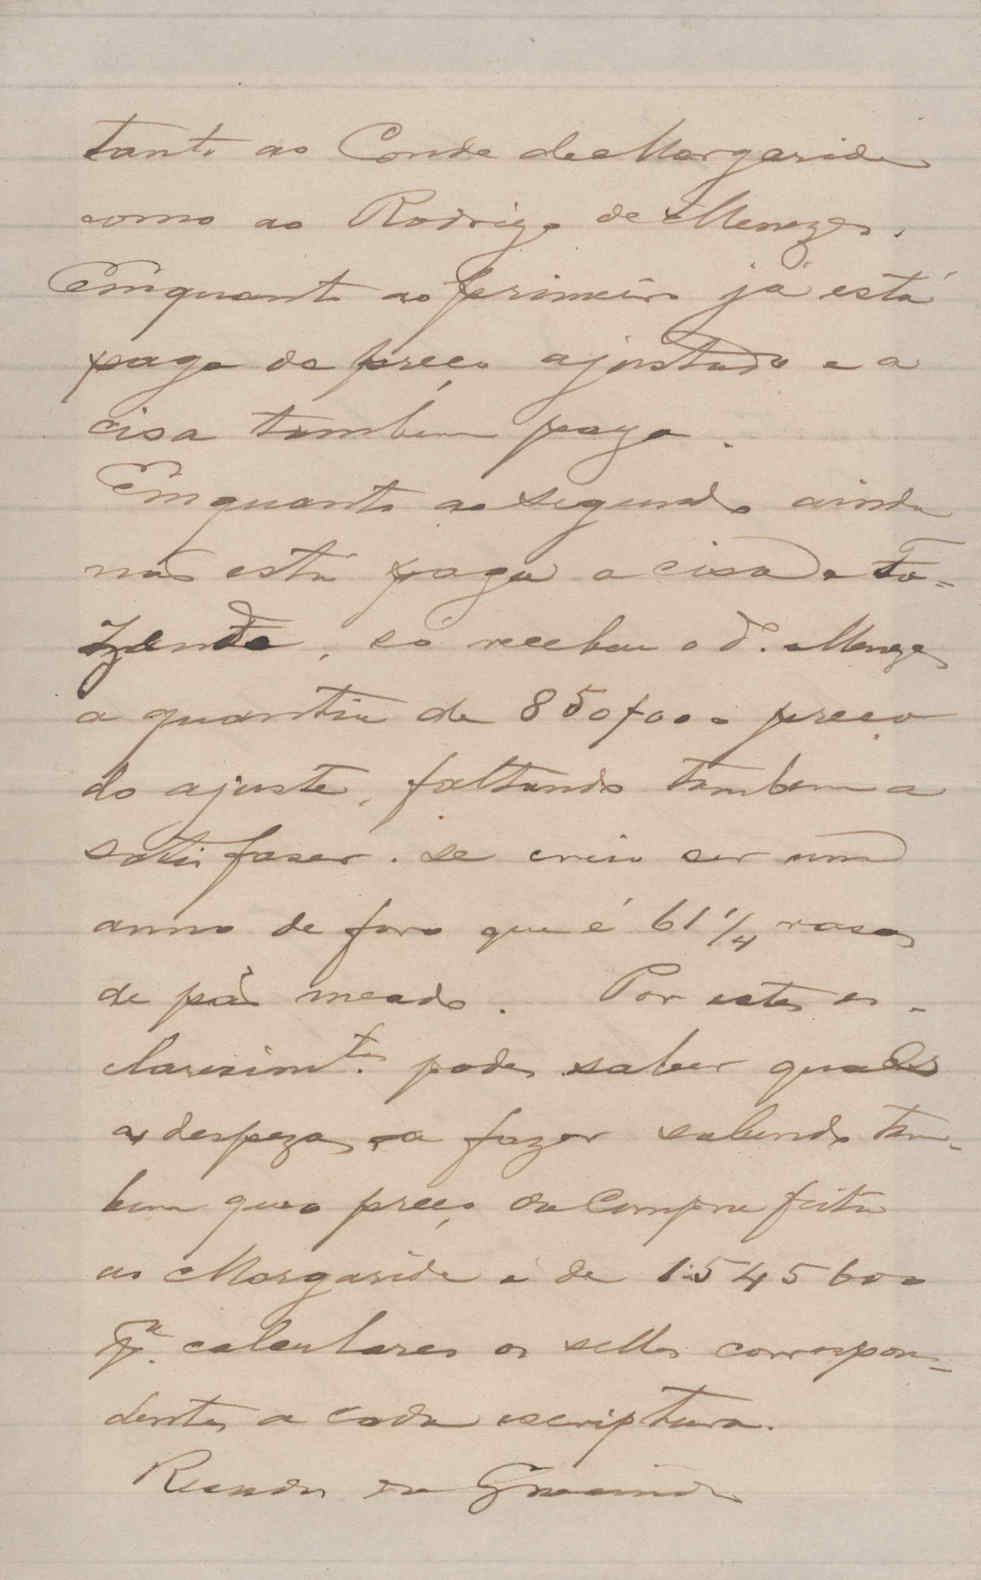 tanto ao Conde de Margaride
como ao Rodrigo de Menezes.
Emquanto ao primeiro já está
pago do preço ajustado e a
cisa tambem paga.
Emquanto ao segundo ainda
não está paga a cisa a Fa-
zenda, só recebeu o d.º Menezes
a quantia de 850$000 preço
do ajuste, faltando tambem a
satisfaser. se creio ser um
anno de foro que é 61 1/4 rasas
de pão meado. Por estes es-
clarecim.tos podes saber quaes
as despezas a fazer sabendo tam-
bem que o preço da Compra feita
ao Margaride é de 1545600
p.ª calculares os sellos correspon-
dentes a cada escriptura.
Recados da Gracinda